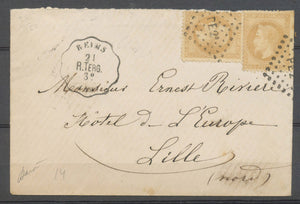 REIMS
21
R.TERG.
Monsieur Ernest Rivière
Hôtel de L'Europe
Lille
(nord)